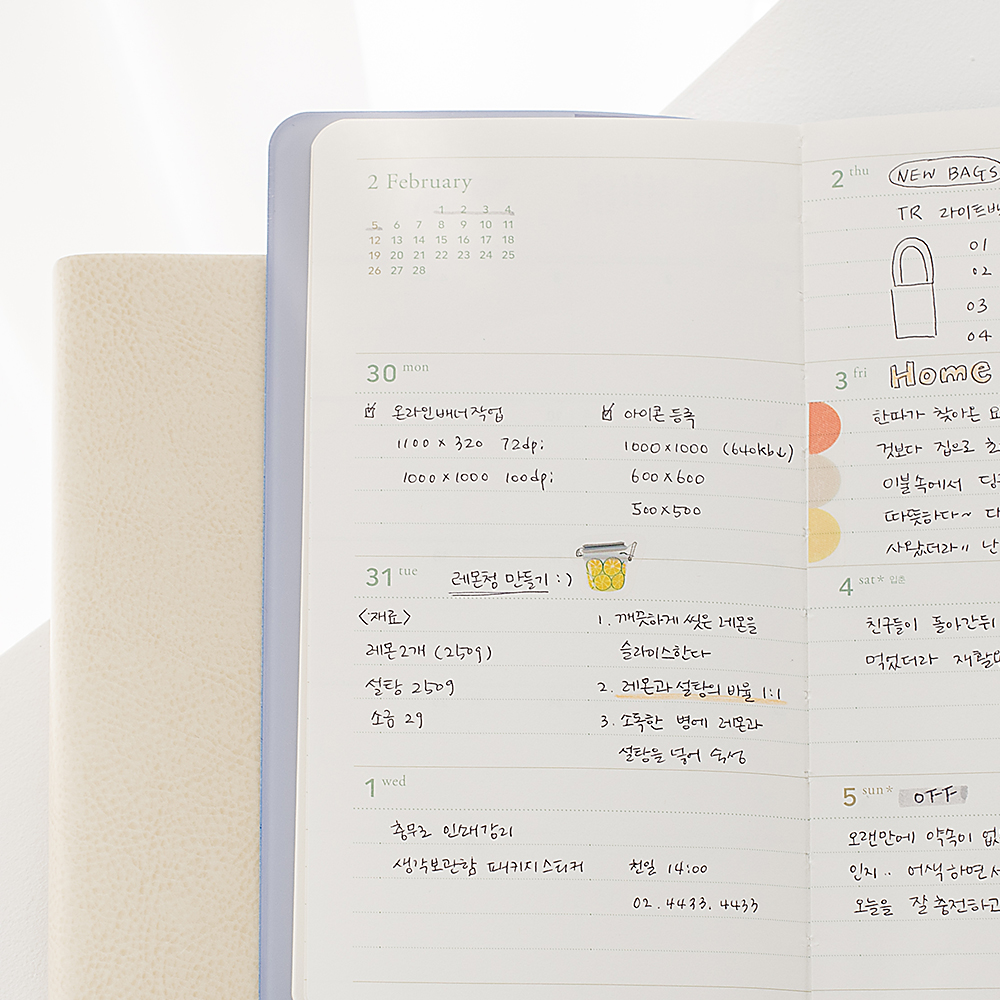 2 February
1 2 3 4
5 6 7 8 9 10 11
12 13 14 15 16 17 18
19 20 21 22 23 24 25
26 27 28
30 mon
온라인배너작업
1100 x 320 72dpi
1000 x 1000 100dpi
아이콘 등록
1000 x 1000 (640kb↓)
600 x 600
500 x 500
31 tue 레몬청 만들기 :)
<재료>
레몬2개 (250g)
설탕 250g
소금 2g
1. 깨끗하게 씻은 레몬을
슬라이스한다
2. 레몬과 설탕의 비율 1:1
3. 소독한 병에 레몬과
설탕을 넣어 숙성
1 wed
충무로 인쇄감리
생각보관함 패키지스티커
천일 14:00
02.4433.4433
2 thu NEW BAGS
TR 라이트
01
02
03
04
3 fri Home
한파가 찾아온
것보다 집으로
이불속에서
따뜻하다~
사왔더라!! 난
4 sat* 입춘
친구들이 돌아간뒤
먹었더라
5 sun* OFF
오랜만에 약속이
인지.. 어색하면서
오늘을 잘 충전하고